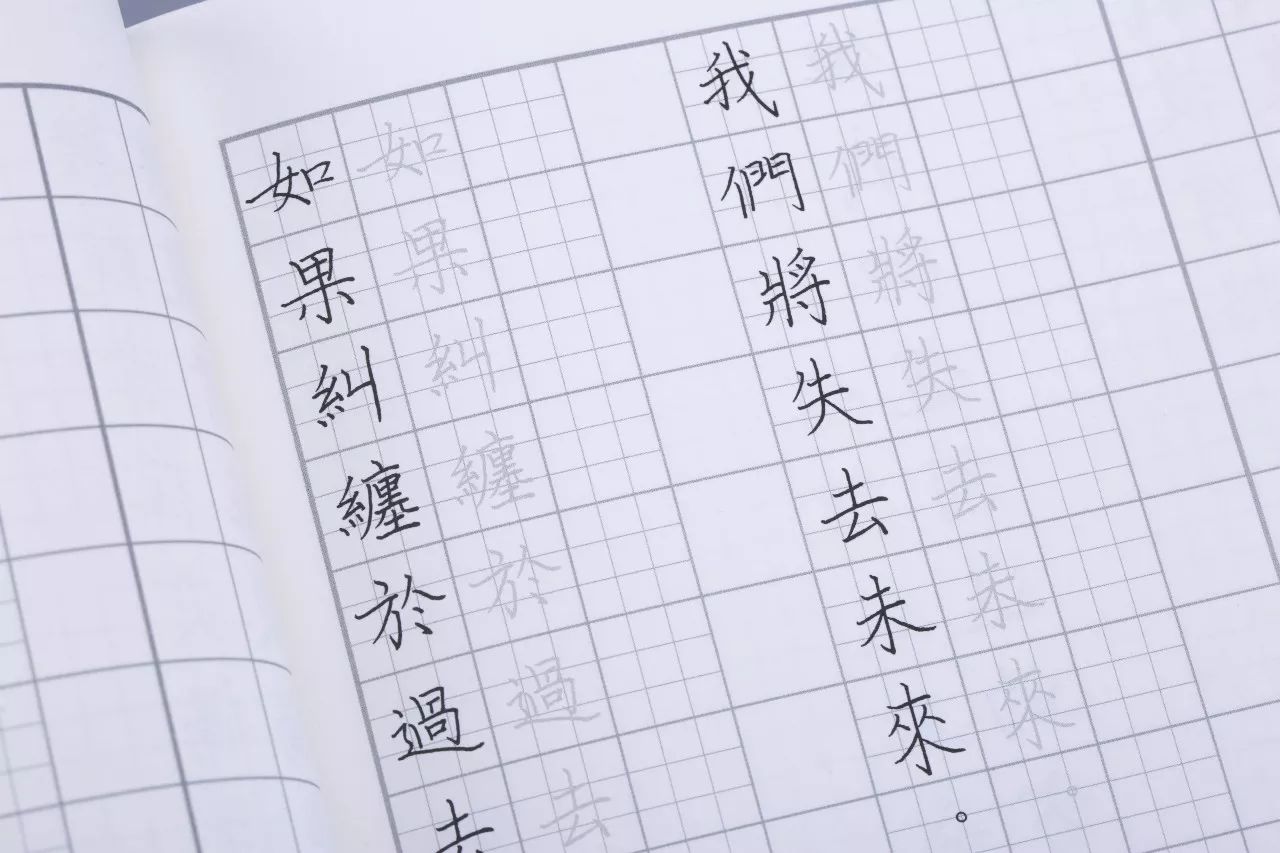 如果糾纏於過去
如果糾纏於過去
我們將失去未來。
我們將失去未來。